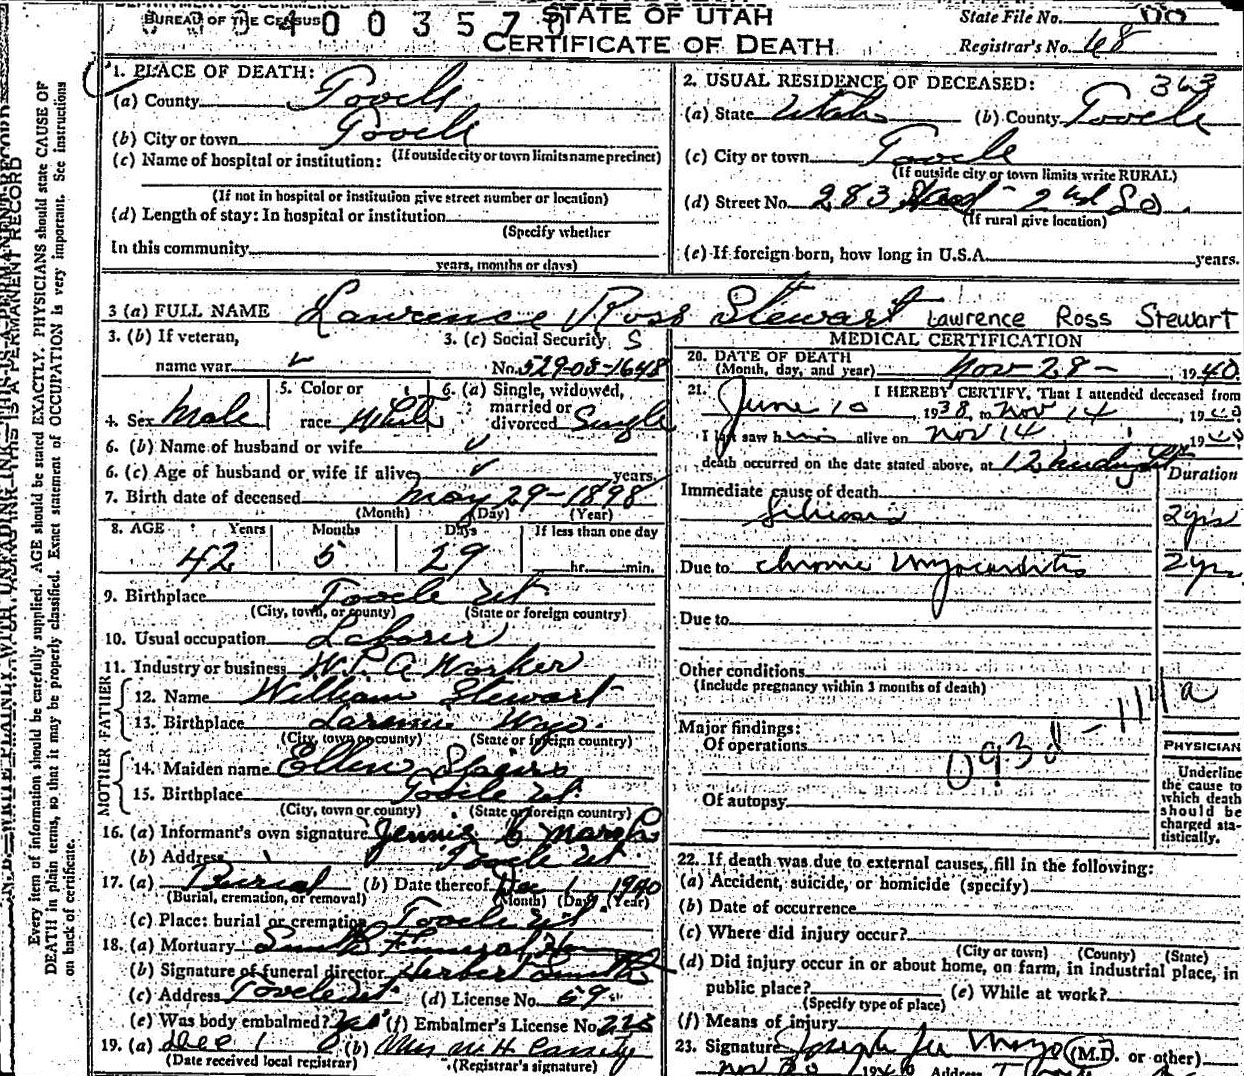 BUREAU OF THE CENSUS
STATE OF UTAH
CERTIFICATE OF DEATH
State File No.
Registrar's No. 68
1. PLACE OF DEATH:
(a) County Tooele
(b) City or town Tooele
(If outside city or town limits name precinct)
(c) Name of hospital or institution:
(If not in hospital or institution give street number or location)
(d) Length of stay: In hospital or institution
(Specify whether
In this community
years, months or days)
2. USUAL RESIDENCE OF DECEASED: 363
(a) State Utah (b) County Tooele
(c) City or town Tooele
(If outside city or town limits write RURAL)
(d) Street No. 283 2nd So.
(If rural give location)
(e) If foreign born, how long in U.S.A. years.
3 (a) FULL NAME Lawrence Ross Stewart Lawrence Ross Stewart
3. (b) If veteran,
name war
3. (c) Social Security S
No. 529-03-1648
4. Sex Male
5. Color or
race White
6. (a) Single, widowed,
married or
divorced Single
6. (b) Name of husband or wife
6. (c) Age of husband or wife if alive years.
7. Birth date of deceased May 29-1898
(Month) (Day) (Year)
8. AGE Years Months Days If less than one day
42 5 29 hr. min.
9. Birthplace Tooele Ut
(City, town, or county) (State or foreign country)
10. Usual occupation Laborer
11. Industry or business W.P.A Worker
FATHER
12. Name William Stewart
13. Birthplace Laramie Wyo.
(City, town or county) (State or foreign country)
MOTHER
14. Maiden name Ellen
15. Birthplace Tooele Ut.
(City, town or county) (State or foreign country)
16. (a) Informant's own signature Jennie C Marsh
(b) Address Tooele Ut.
17. (a) Burial (b) Date thereof Dec 1 1940
(Burial, cremation, or removal) (Month) (Day) (Year)
(c) Place: burial or cremation Tooele Ut.
18. (a) Mortuary Smith Funeral
(b) Signature of funeral director Herbert Smith
(c) Address Tooele Ut. (d) License No. 59
(e) Was body embalmed? Yes (f) Embalmer's License No.
19. (a) Dec 1 (b) Mrs M H Cassity
(Date received local registrar) (Registrar's signature)
MEDICAL CERTIFICATION
20. DATE OF DEATH
(Month, day, and year) Nov 28 - , 1940.
21. I HEREBY CERTIFY, That I attended deceased from
June 10, 1938, to Nov 14, 1940
I last saw him alive on Nov 14, 1940
death occurred on the date stated above, at 12 midnight
Duration
Immediate cause of death
Silicosis 2 yrs
Due to chronic Myocarditis 2 yrs
Due to
Other conditions
(Include pregnancy within 3 months of death)
Major findings:
Of operations
093d - 114a
Of autopsy
PHYSICIAN
Underline
the cause to
which death
should be
charged sta-
tistically.
22. If death was due to external causes, fill in the following:
(a) Accident, suicide, or homicide (specify)
(b) Date of occurrence
(c) Where did injury occur?
(City or town) (County) (State)
(d) Did injury occur in or about home, on farm, in industrial place, in
public place? (e) While at work?
(Specify type of place)
(f) Means of injury
23. Signature Joseph Lee Mayo (M.D. or other)
Nov 30 1940 Address
Every item of information should be carefully supplied. AGE should be stated EXACTLY. PHYSICIANS should state CAUSE OF
DEATH in plain terms, so that it may be properly classified. Exact statement of OCCUPATION is very important. See instructions
on back of certificate.